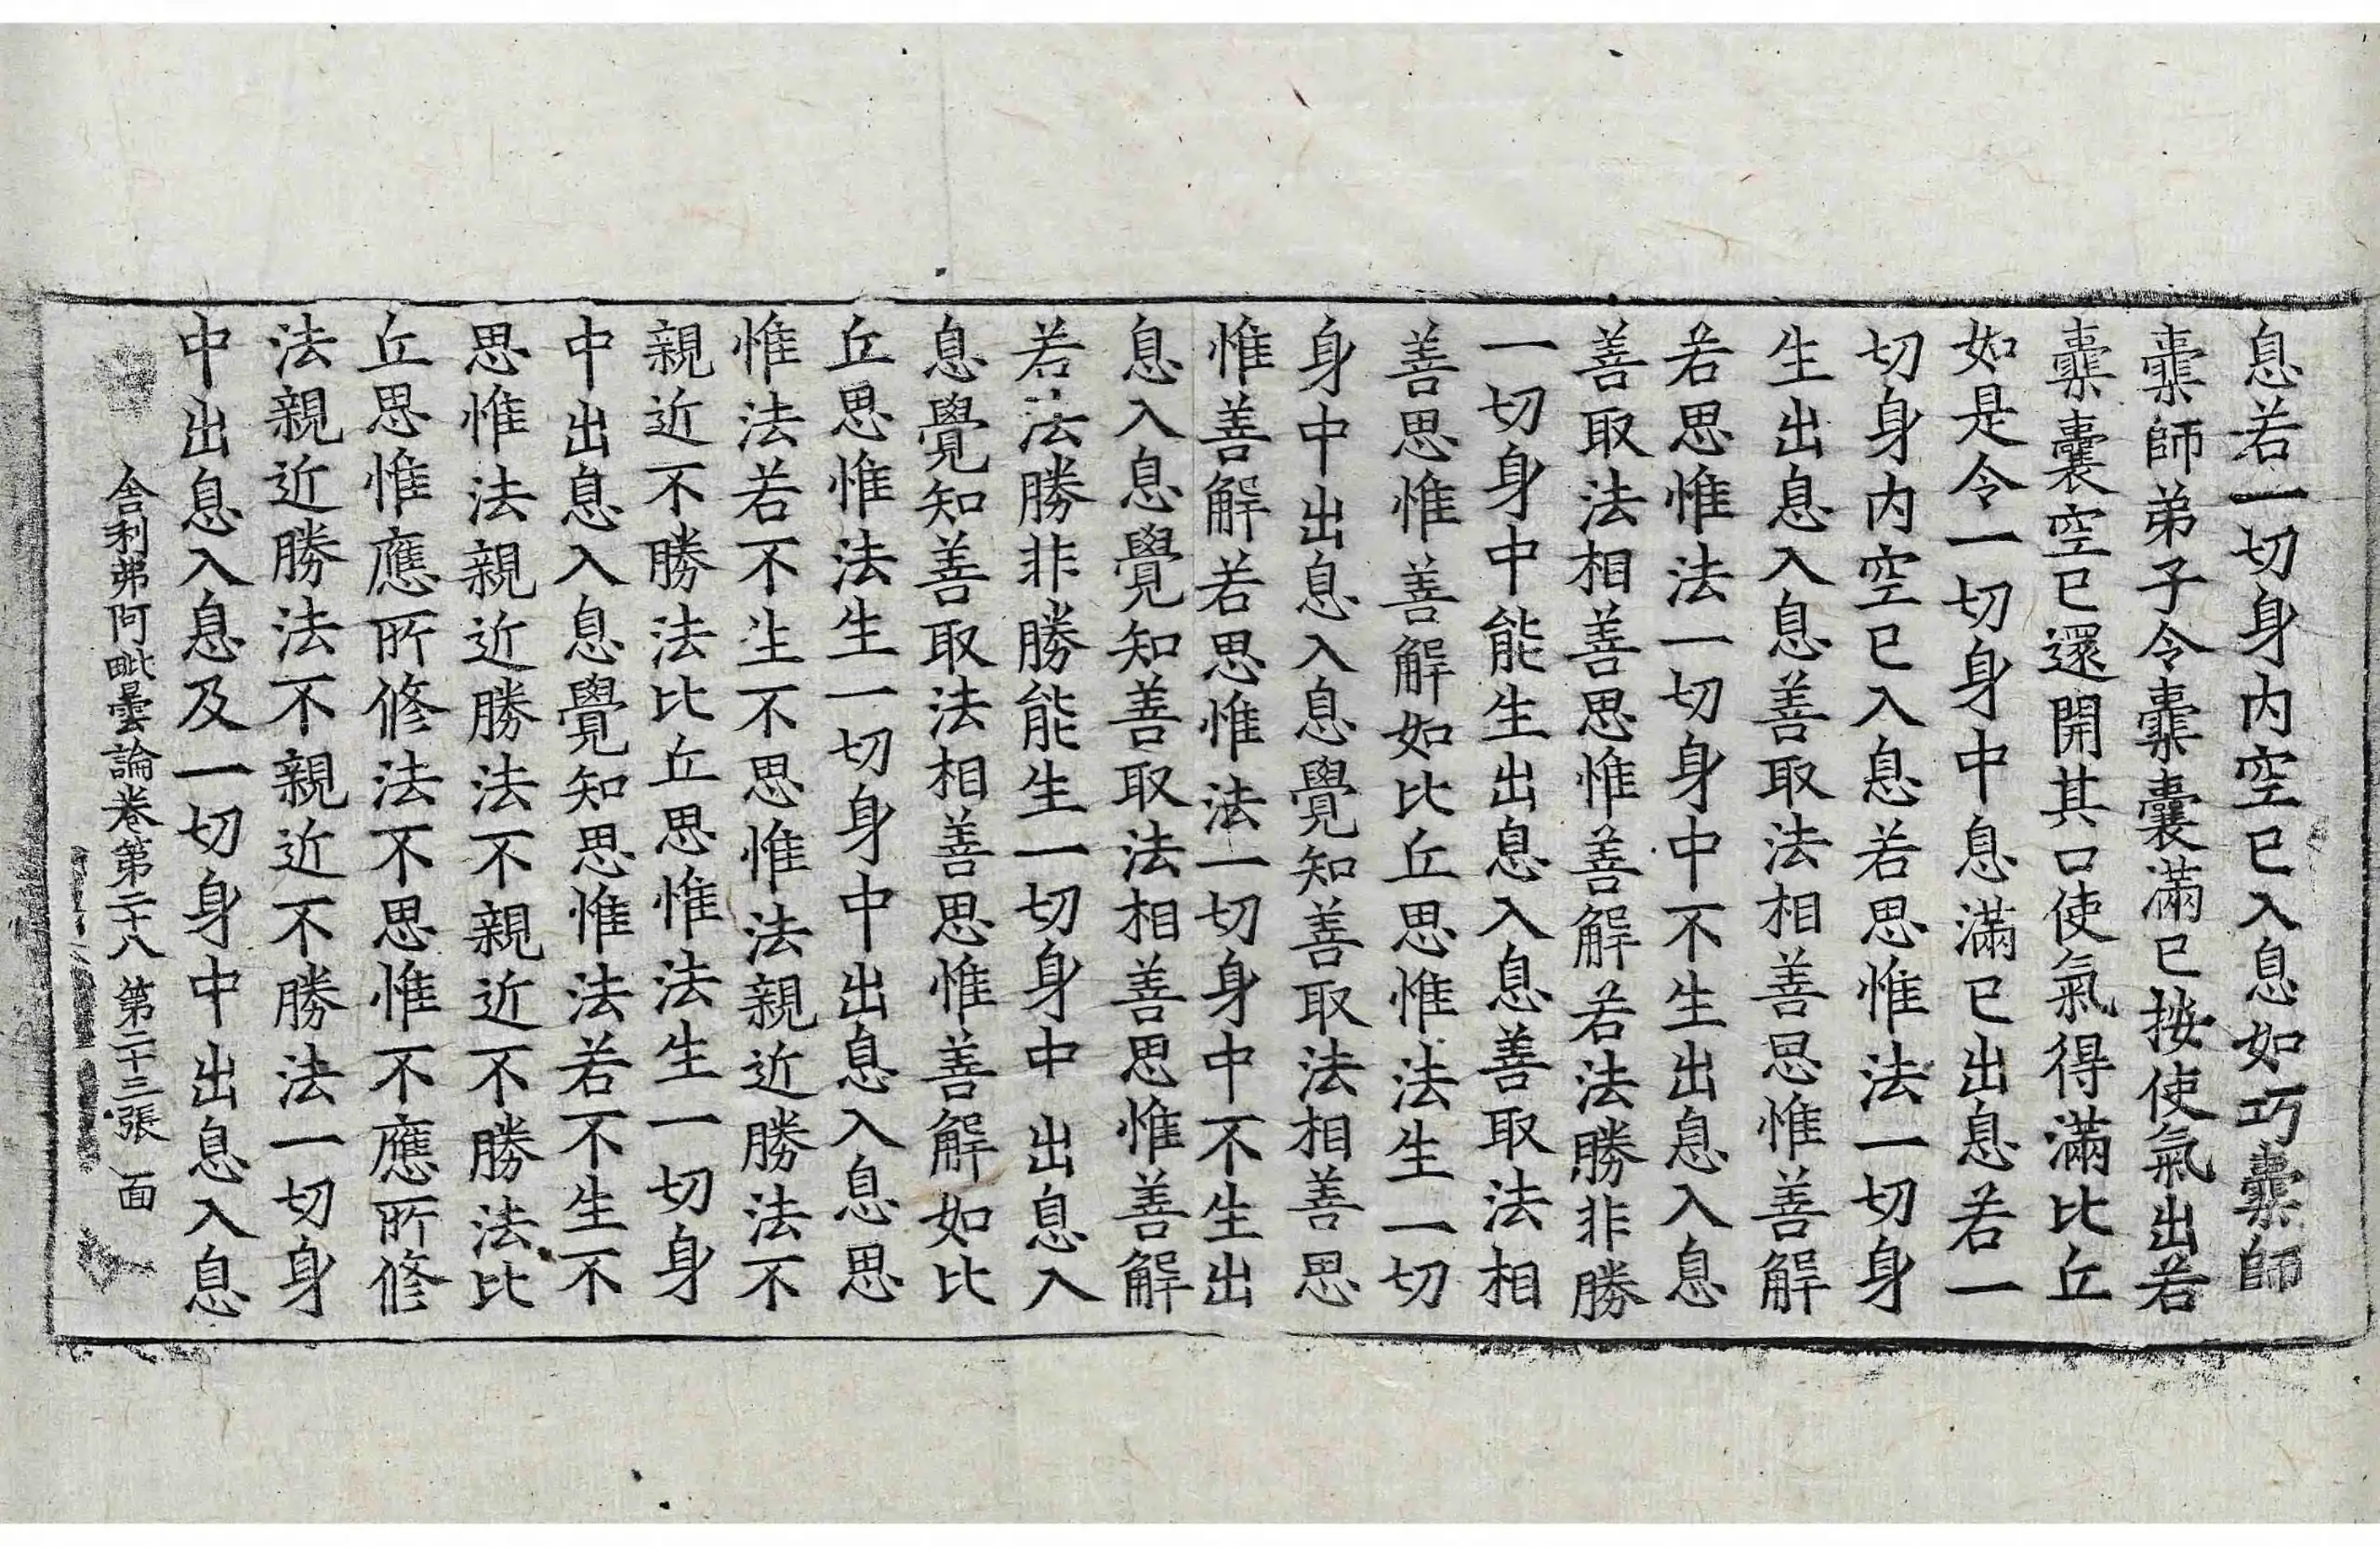 息若一切身内空已入息如巧櫜師
櫜師弟子令櫜囊滿已按使氣出若
櫜囊空已還開其口使氣得滿比丘
如是令一切身中息滿已出息若一
切身内空已入息若思惟法一切身
生出息入息善取法相善思惟善解
若思惟法一切身中不生出息入息
善取法相善思惟善解若法勝非勝
一切身中能生出息入息善取法相
善思惟善解如比丘思惟法生一切
身中出息入息覺知善取法相善思
惟善解若思惟法一切身中不生出
息入息覺知善取法相善思惟善解
若法勝非勝能生一切身中出息入
息覺知善取法相善思惟善解如比
丘思惟法生一切身中出息入息思
惟法若不生不思惟法親近勝法不
親近不勝法比丘思惟法生一切身
中出息入息覺知思惟法若不生不
思惟法親近勝法不親近不勝法比
丘思惟應所修法不思惟不應所修
法親近勝法不親近不勝法一切身
中出息入息及一切身中出息入息
舍利弗阿毗曇論卷第二十八 第二十三張 面